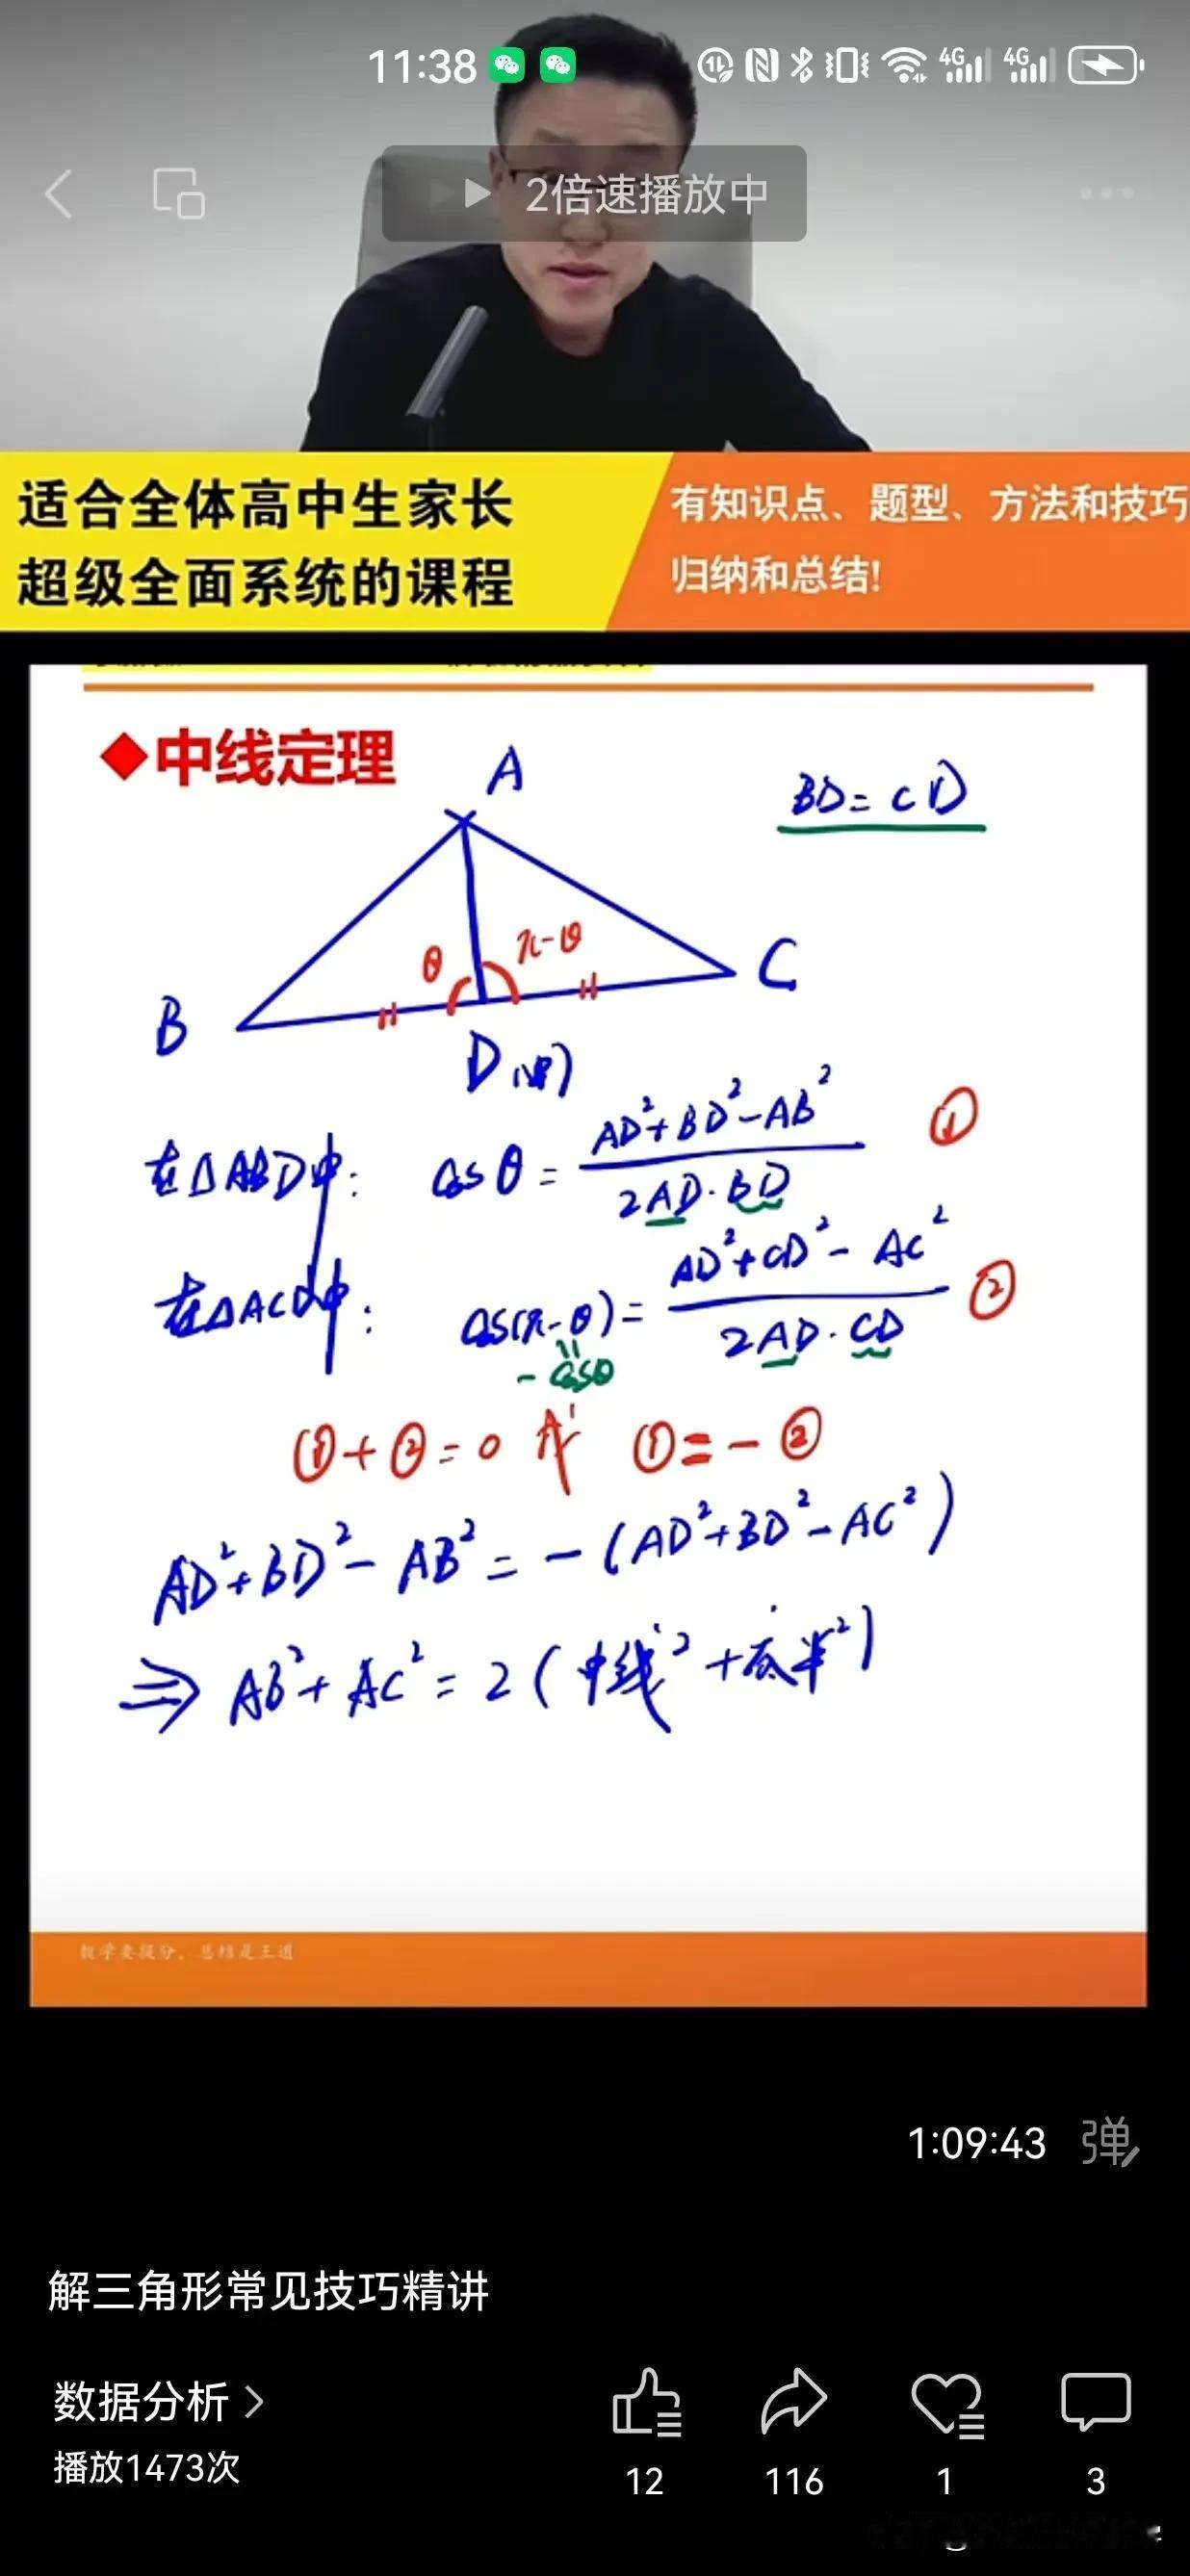 11:38
4G 4G
2倍速播放中
适合全体高中生家长
超级全面系统的课程
有知识点、题型、方法和技巧
归纳和总结!
中线定理
A
BD=CD
θ π-θ
B
C
D(中)
在△ABD中: cosθ = (AD²+BD²-AB²)/(2AD·BD) ①
在△ACD中: cos(π-θ) = (AD²+CD²-AC²)/(2AD·CD) ②
-cosθ
①+②=0 ①=-②
AD²+BD²-AB²=-(AD²+BD²-AC²)
⇒ AB²+AC²=2(中线²+底半²)
数学要提分，总结是王道
1:09:43 弹
解三角形常见技巧精讲
数据分析
播放1473次
12 116 1 3